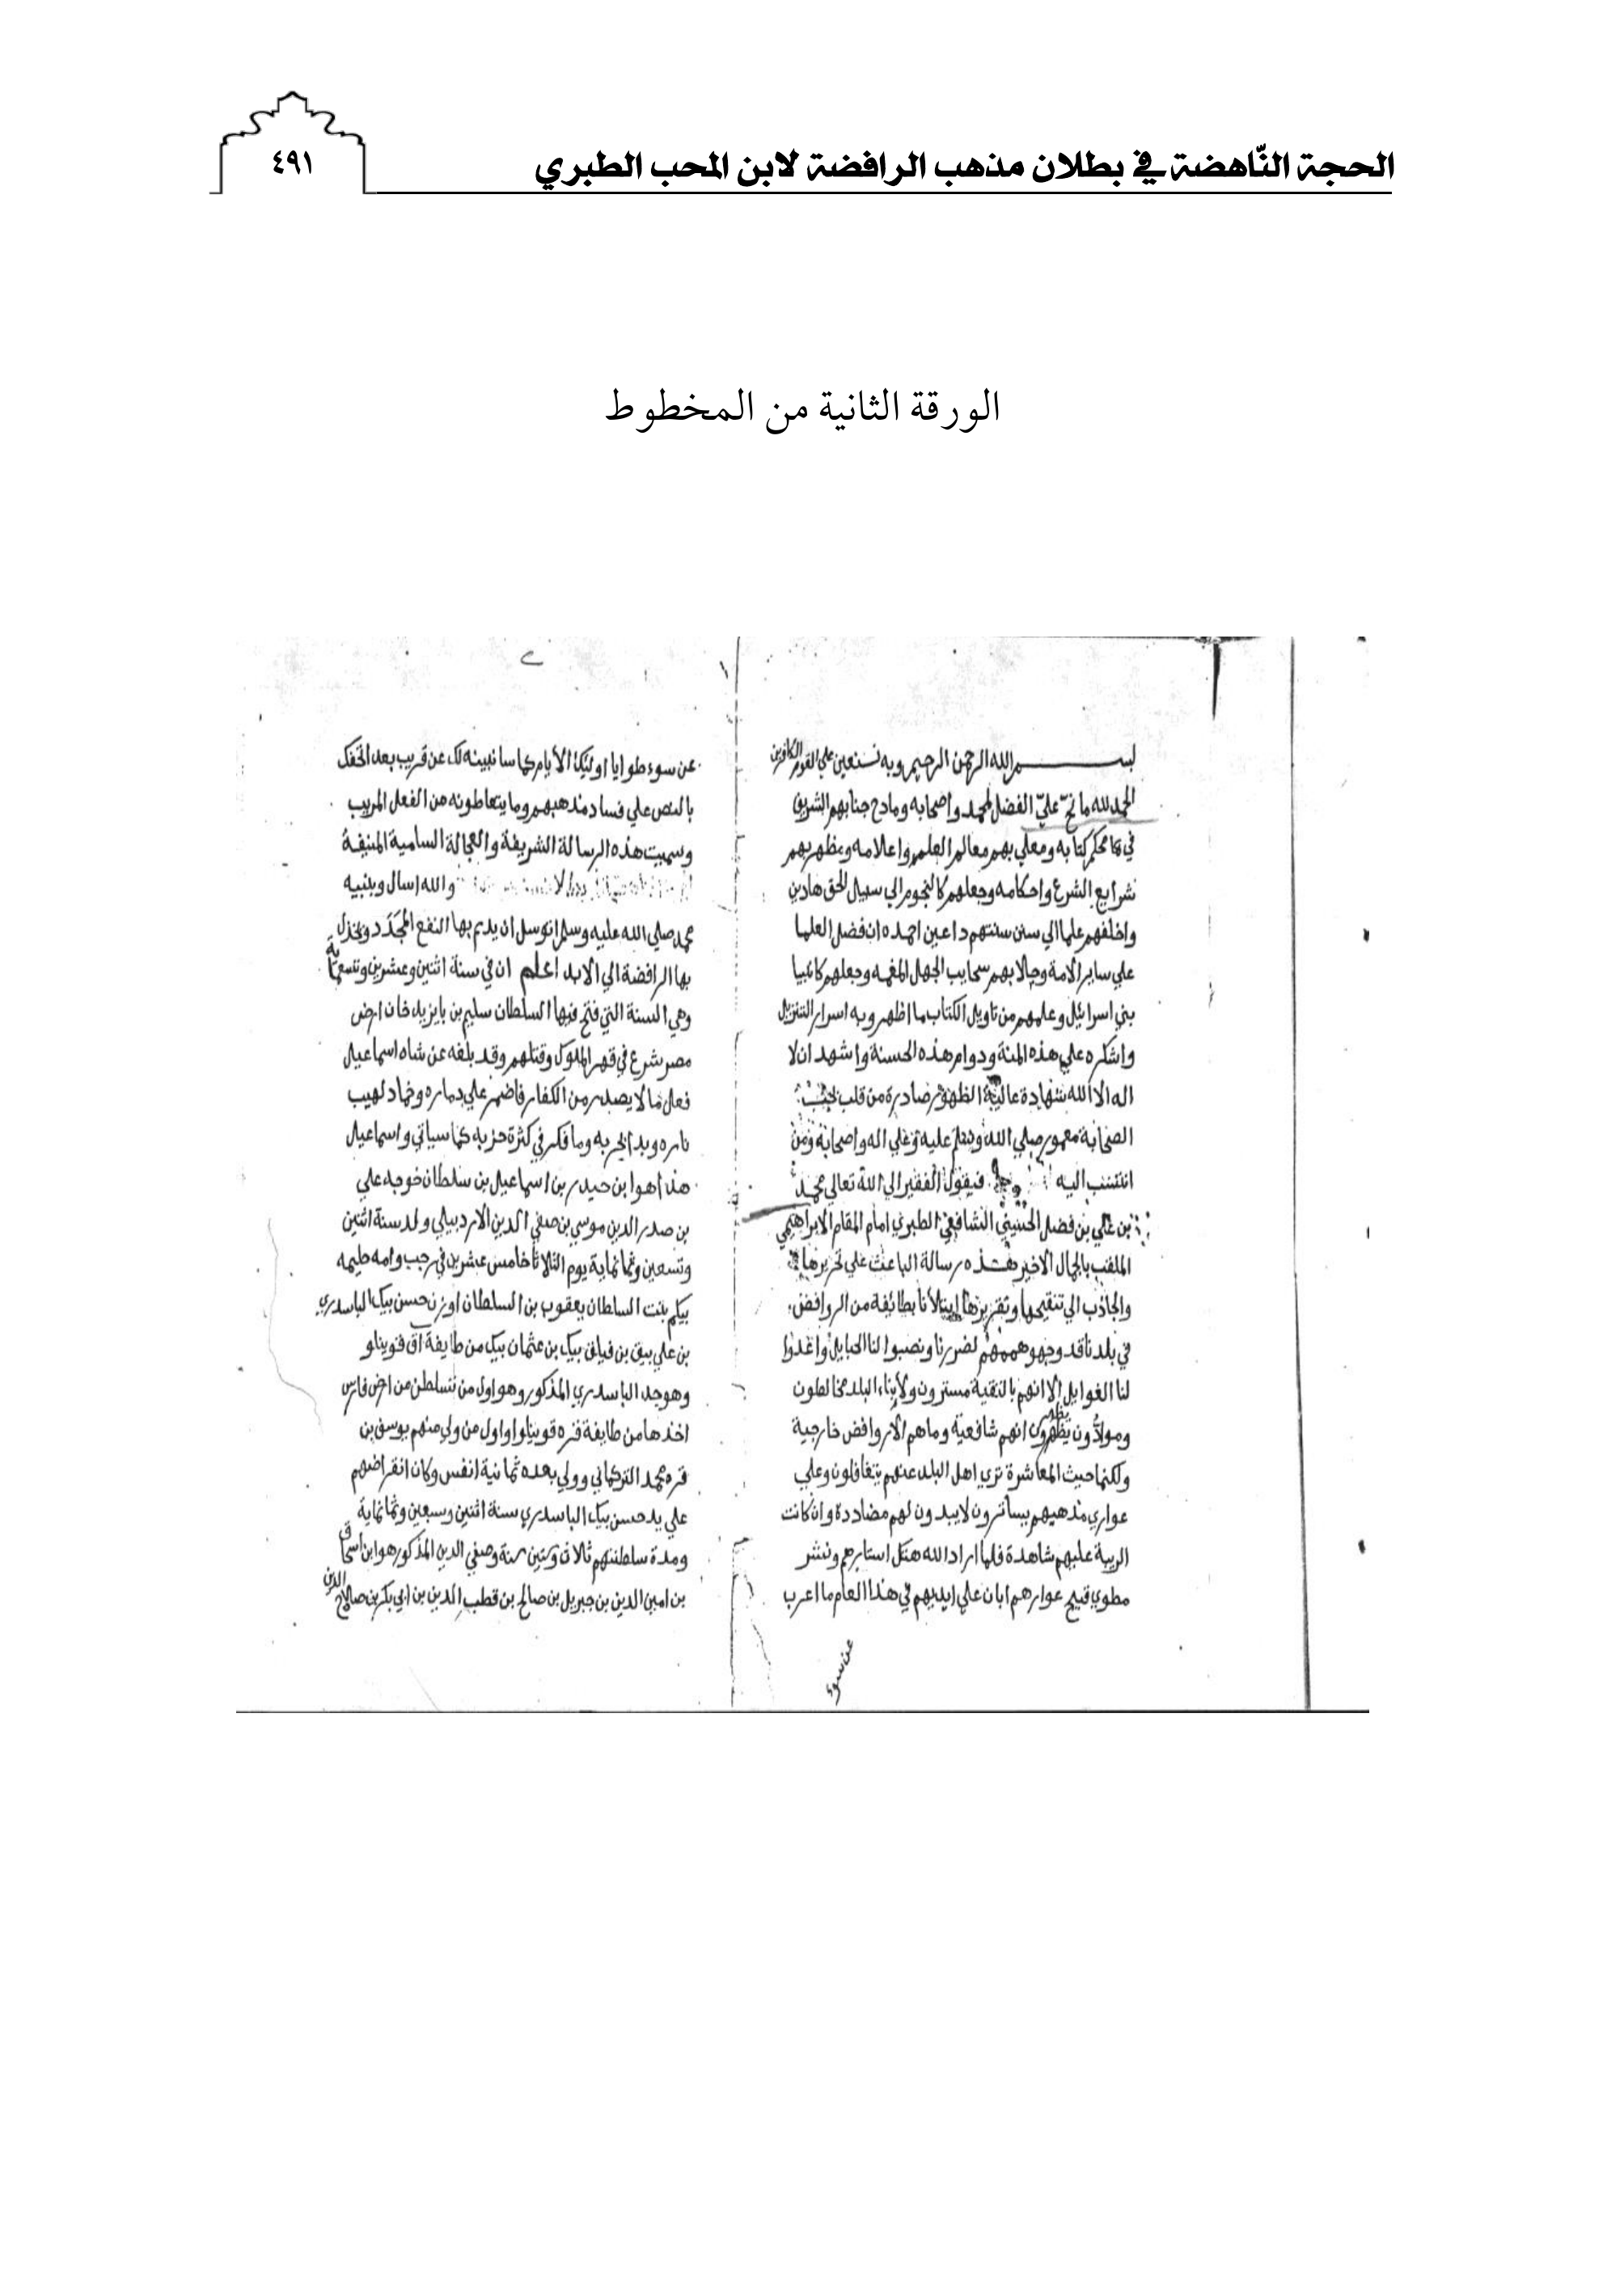 الحجة النّاهضة في بطلان مذهب الرافضة لابن المحب الطبري
٤٩١
الورقة الثانية من المخطوط
بسم الله الرحمن الرحيم وبه نستعين علي القوم الكافرين
الحمد لله مانح عليّ الفضل لمحمد واصحابه ومادح جنابهم الشريف
في محكم كتابه ومعلي بهم معالم العلم واعلامه ومظهر بهم
شرايع الشرع واحكامه وجعلهم كالنجوم الي سبيل الحق هادين
واخلفهم علما الي سنن سنتهم داعين احمده ان فضل العلما
علي ساير الامة وجلا بهم سحايب الجهل المغمه وجعلهم كانبيا
بني اسرائيل وعلمهم من تاويل الكتاب ما اظهروبه اسرار التنزيل
واشكره علي هذه المنة ودوام هذه الحسنة واشهد ان لا
اله الا الله شهادة عالية الظهور صادرة من قلب بحب
الصحابة معمور صلي الله وسلم عليه وعلي اله واصحابه ومن
انتسب اليه فيقول الفقير الي الله تعالي محمد
بن علي بن فضل الحسيني الشافعي الطبري امام المقام الابراهيمي
الملقب بالجمال الاخير هذه رسالة الباعث علي تحريرها
والجاذب الي تنقيحها وتقريرها ابتلانا بطائفة من الروافض
في بلدنا قد وجهو هممهم لضررنا ونصبوا لنا الحبايل واغدوا
لنا الغوايل الا انهم بالتقية مستترون ولابناء البلد مخالطون
وموادّون يظهرون انهم شافعية وما هم الا روافض خارجية
ولكنما حيث المعاشرة تري اهل البلد عنهم يتغافلون وعلي
عواري مذهبهم يساترون لا يبدون لهم مضاددة وان كانت
الريبة عليهم شاهدة فلما اراد الله هتك استارهم ونشر
مطوي قبيح عوارهم ابان علي ايديهم في هذا العام ما اعرب
عن سوء
عن سوء طوايا اوليك الأيام كما سانبينه لك عن قريب بعد
بالنص علي فساد مذهبهم وما يتعاطونه من الفعل المريب
وسميت هذه الرسالة الشريفة والعجالة السامية المنيفة
والله اسال وبنبيه
محمد صلي الله عليه وسلم اتوسل ان يديم بها النفع المجدد ويخذل
بها الرافضة الي الابد اعلم ان في سنة اثنين وعشرين وتسعماية
وهي السنة التي فتح فيها السلطان سليم بن بايزيد خان ارض
مصر شرع في قهر الملوك وقتلهم وقد بلغه عن شاه اسماعيل
فعل ما لا يصدر من الكفار فاضمر علي دماره وخماد لهيب
ناره وبدا لحربه وما فكر في كثرة حزبه كما سياتي واسماعيل
هذا هو ابن حيدر بن اسماعيل بن سلطان خوجه علي
بن صدر الدين موسي بن صفي الدين الاردبيلي ولد سنة اثنين
وتسعين وثمانماية يوم الثلاثا خامس عشرين في رجب وامه حليمه
بيكم بنت السلطان يعقوب بن السلطان اوزن حسن بيك الباسدري
بن علي بيق بن فيلق بيك بن عثمان بيك من طايفة اق قوينلو
وهو جد الباسدري المذكور وهو اول من تسلطن من ارض فارس
اخذها من طايفة قره قوينلوا واول من ولي منهم يوسف بن
قره محمد التركماني وولي بعده ثمانية انفس وكان انقراضهم
علي يد حسن بيك الباسدري سنة اثنين وسبعين وثمانماية
ومدة سلطنتهم ثلاث وستين سنة وصفي الدين المذكور هو ابن اسحاق
بن امين الدين بن جبريل بن صالح بن قطب الدين بن ابي بكر بن صلاح الدين